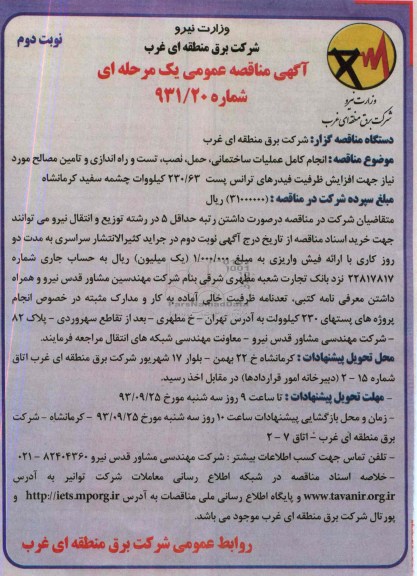 وزارت نیرو
شرکت برق منطقه ای غرب
نوبت دوم
آگهی مناقصه عمومی یک مرحله ای
شماره ۹۳۱/۲۰
وزارت نیرو
شرکت برق منطقه‌ای غرب
دستگاه مناقصه گزار: شرکت برق منطقه ای غرب
موضوع مناقصه: انجام کامل عملیات ساختمانی، حمل، نصب، تست و راه اندازی و تامین مصالح مورد
نیاز جهت افزایش ظرفیت فیدرهای ترانس پست ۲۳۰/۶۳ کیلووات چشمه سفید کرمانشاه
مبلغ سپرده شرکت در مناقصه: (۳۱۰۰۰۰۰۰) ریال
متقاضیان شرکت در مناقصه درصورت داشتن رتبه حداقل ۵ در رشته توزیع و انتقال نیرو می توانند
جهت خرید اسناد مناقصه از تاریخ درج آگهی نوبت دوم در جراید کثیرالانتشار سراسری به مدت دو
روز کاری با ارائه فیش واریزی به مبلغ ۱/۰۰۰/۰۰۰ (یک میلیون) ریال به حساب جاری شماره
۲۲۸۱۷۸۱۷ نزد بانک تجارت شعبه مطهری شرقی بنام شرکت مهندسین مشاور قدس نیرو و همراه
داشتن معرفی نامه کتبی، تعدنامه ظرفیت خالی آماده به کار و مدارک مثبته در خصوص انجام
پروژه های پستهای ۲۳۰ کیلوولت به آدرس تهران - خ مطهری - بعد از تقاطع سهروردی - پلاک ۸۲
- شرکت مهندسی مشاور قدس نیرو - معاونت مهندسی شبکه های انتقال مراجعه فرمایند.
محل تحویل پیشنهادات: کرمانشاه خ ۲۲ بهمن - بلوار ۱۷ شهریور شرکت برق منطقه ای غرب اتاق
شماره ۱۵ - ۲ (دبیرخانه امور قراردادها) در مقابل اخذ رسید.
- مهلت تحویل پیشنهادات : تا ساعت ۹ روز سه شنبه مورخ ۹۳/۰۹/۲۵
- زمان و محل بازگشایی پیشنهادات ساعت ۱۰ روز سه شنبه مورخ ۹۳/۰۹/۲۵ - کرمانشاه - شرکت
برق منطقه ای غرب - اتاق ۷ - ۲
- تلفن تماس جهت کسب اطلاعات بیشتر : شرکت مهندسی مشاور قدس نیرو ۸۲۴۰۴۳۶۰ - ۰۲۱
- خلاصه اسناد مناقصه در شبکه اطلاع رسانی معاملات شرکت توانیر به آدرس
www.tavanir.org.ir و پایگاه اطلاع رسانی ملی مناقصات به آدرس http://iets.mporg.ir و
پورتال شرکت برق منطقه ای غرب موجود می باشد.
روابط عمومی شرکت برق منطقه ای غرب